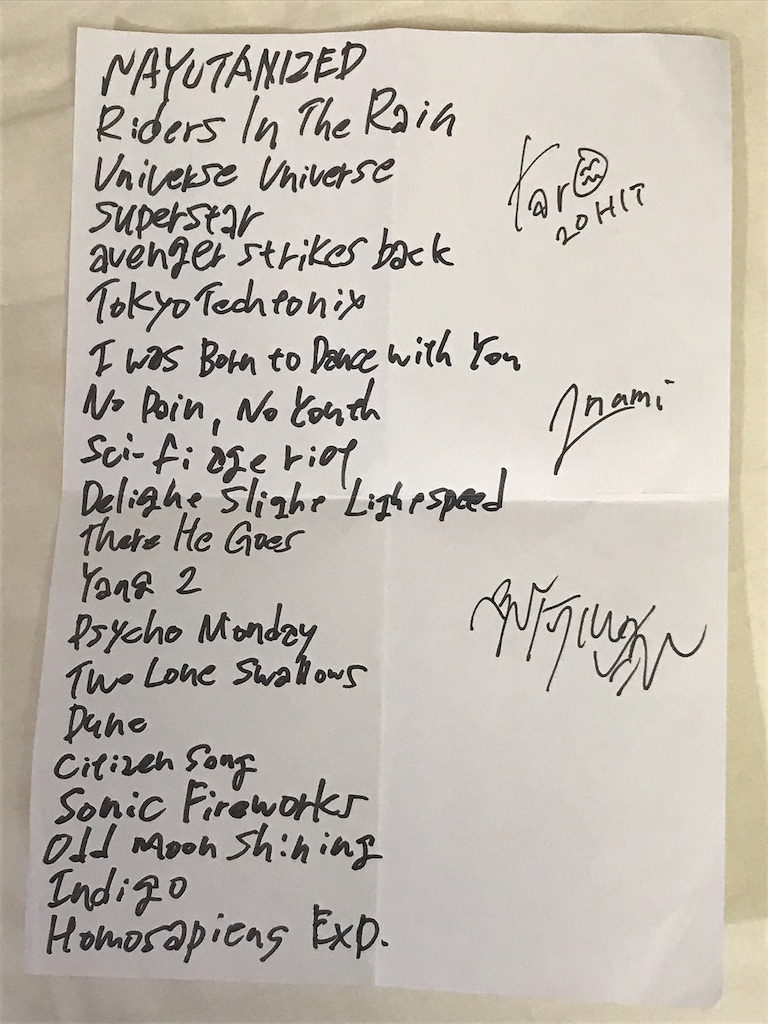 NAYUTANIZED
Riders In The Rain
Universe Universe
Superstar
avenger strikes back
Tokyo Techtonix
I was Born to Dance with You
No Pain, No Youth
Sci-fi age riot
Delight Slight Lightspeed
There He Goes
Yang 2
Psycho Monday
Two Lone Swallows
Dune
Citizen Song
Sonic Fireworks
Odd Moon Shining
Indigo
Homosapiens Exp.
Taro
20HIT
Inami